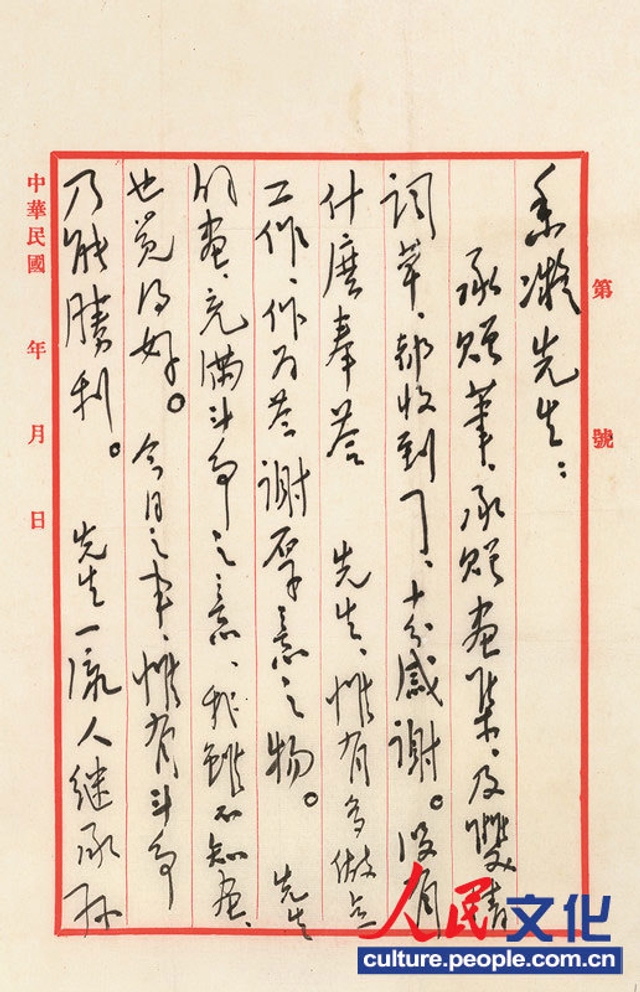 第　號
香凝先生：
承贈筆、承贈畫集、及雙清
詞草、都收到了、十分感謝。沒有
什麽奉答　先生、惟有多做點
工作、作为答謝厚意之物。　先生
的畫、充滿斗争之意、我雖不知畫、
也覚得好。　今日之事、惟有斗争
乃能勝利。　先生一流人继承孙
中華民國　年　月　日
人民文化
culture.people.com.cn